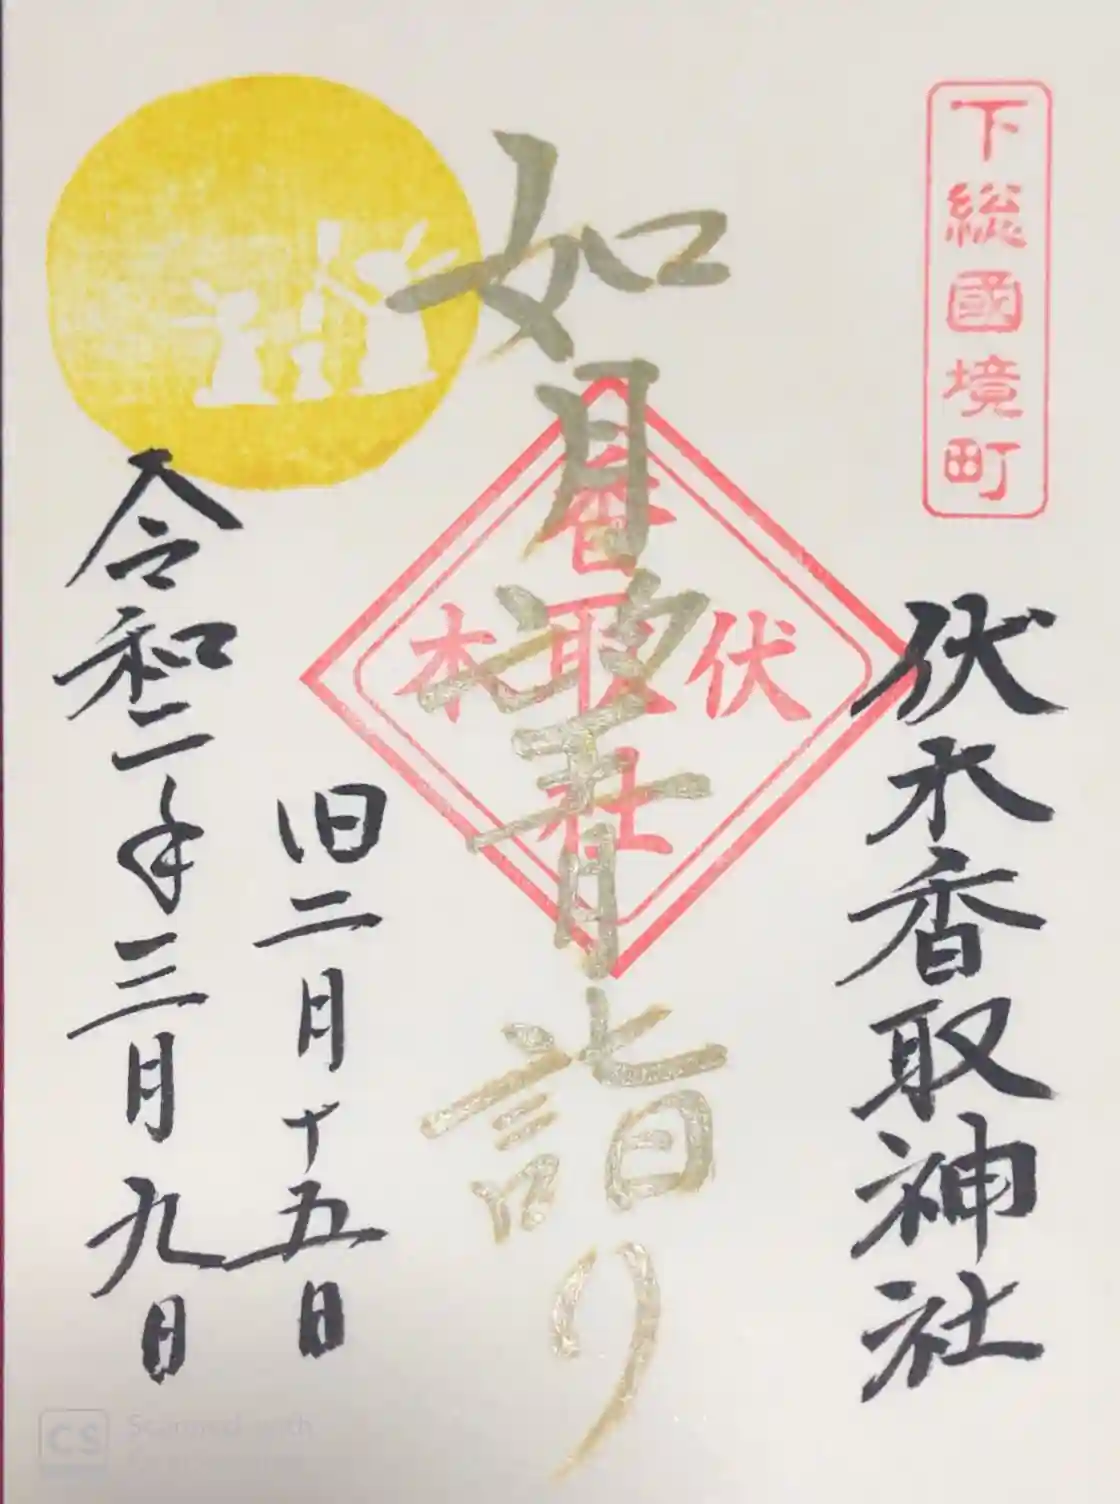 下総國境町
伏木香取神社
如月望月詣り
伏木
香取社
旧二月十五日
令和二年三月九日
CS
Scanned with